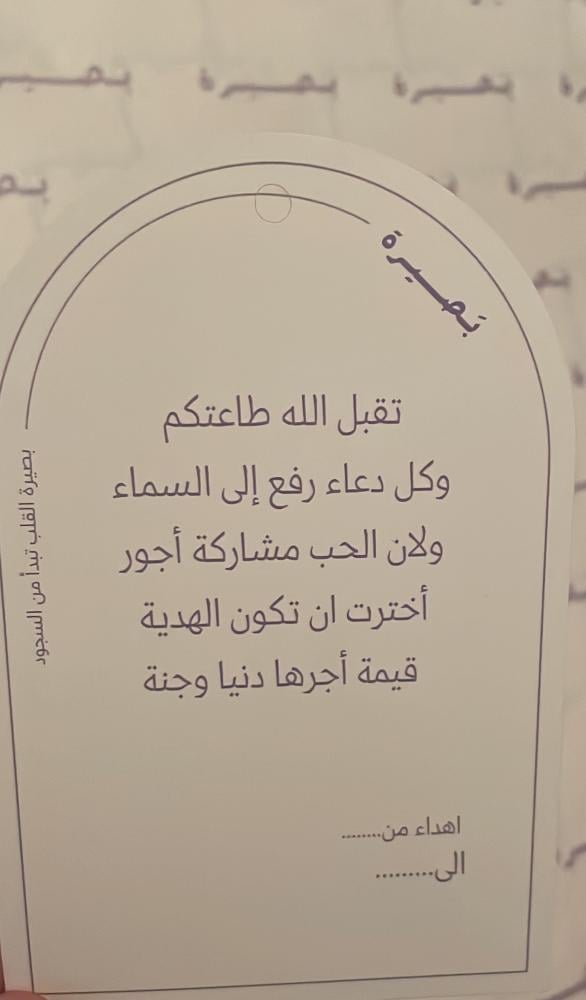 بصيرة بصيرة
بَصيرة
تقبل الله طاعتكم
وكل دعاء رفع إلى السماء
ولان الحب مشاركة أجور
أخترت ان تكون الهدية
قيمة أجرها دنيا وجنة
بصيرة القلب تبدأ من السجود
اهداء من........
الى.........